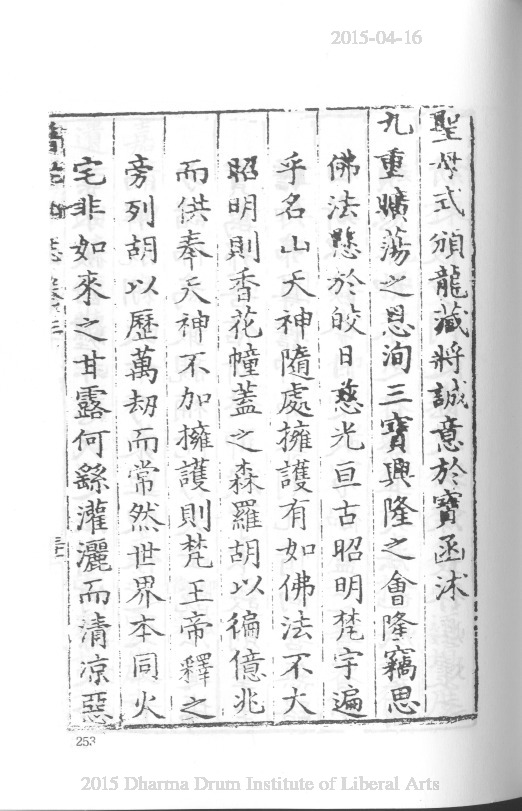 2015-04-16
聖母式頒龍藏將誠意於寶函沭
九重曠蕩之恩洵三寶興隆之會隆竊思
佛法懸於皎日慈光亘古昭明梵宇遍
乎名山天神隨處擁護有如佛法不大
昭明則香花幢蓋之森羅胡以徧億兆
而供奉天神不加擁護則梵王帝釋之
旁列胡以歷萬劫而常然世界本同火
宅非如來之甘露何繇灌灑而清凉惡
253
2015 Dharma Drum Institute of Liberal Arts